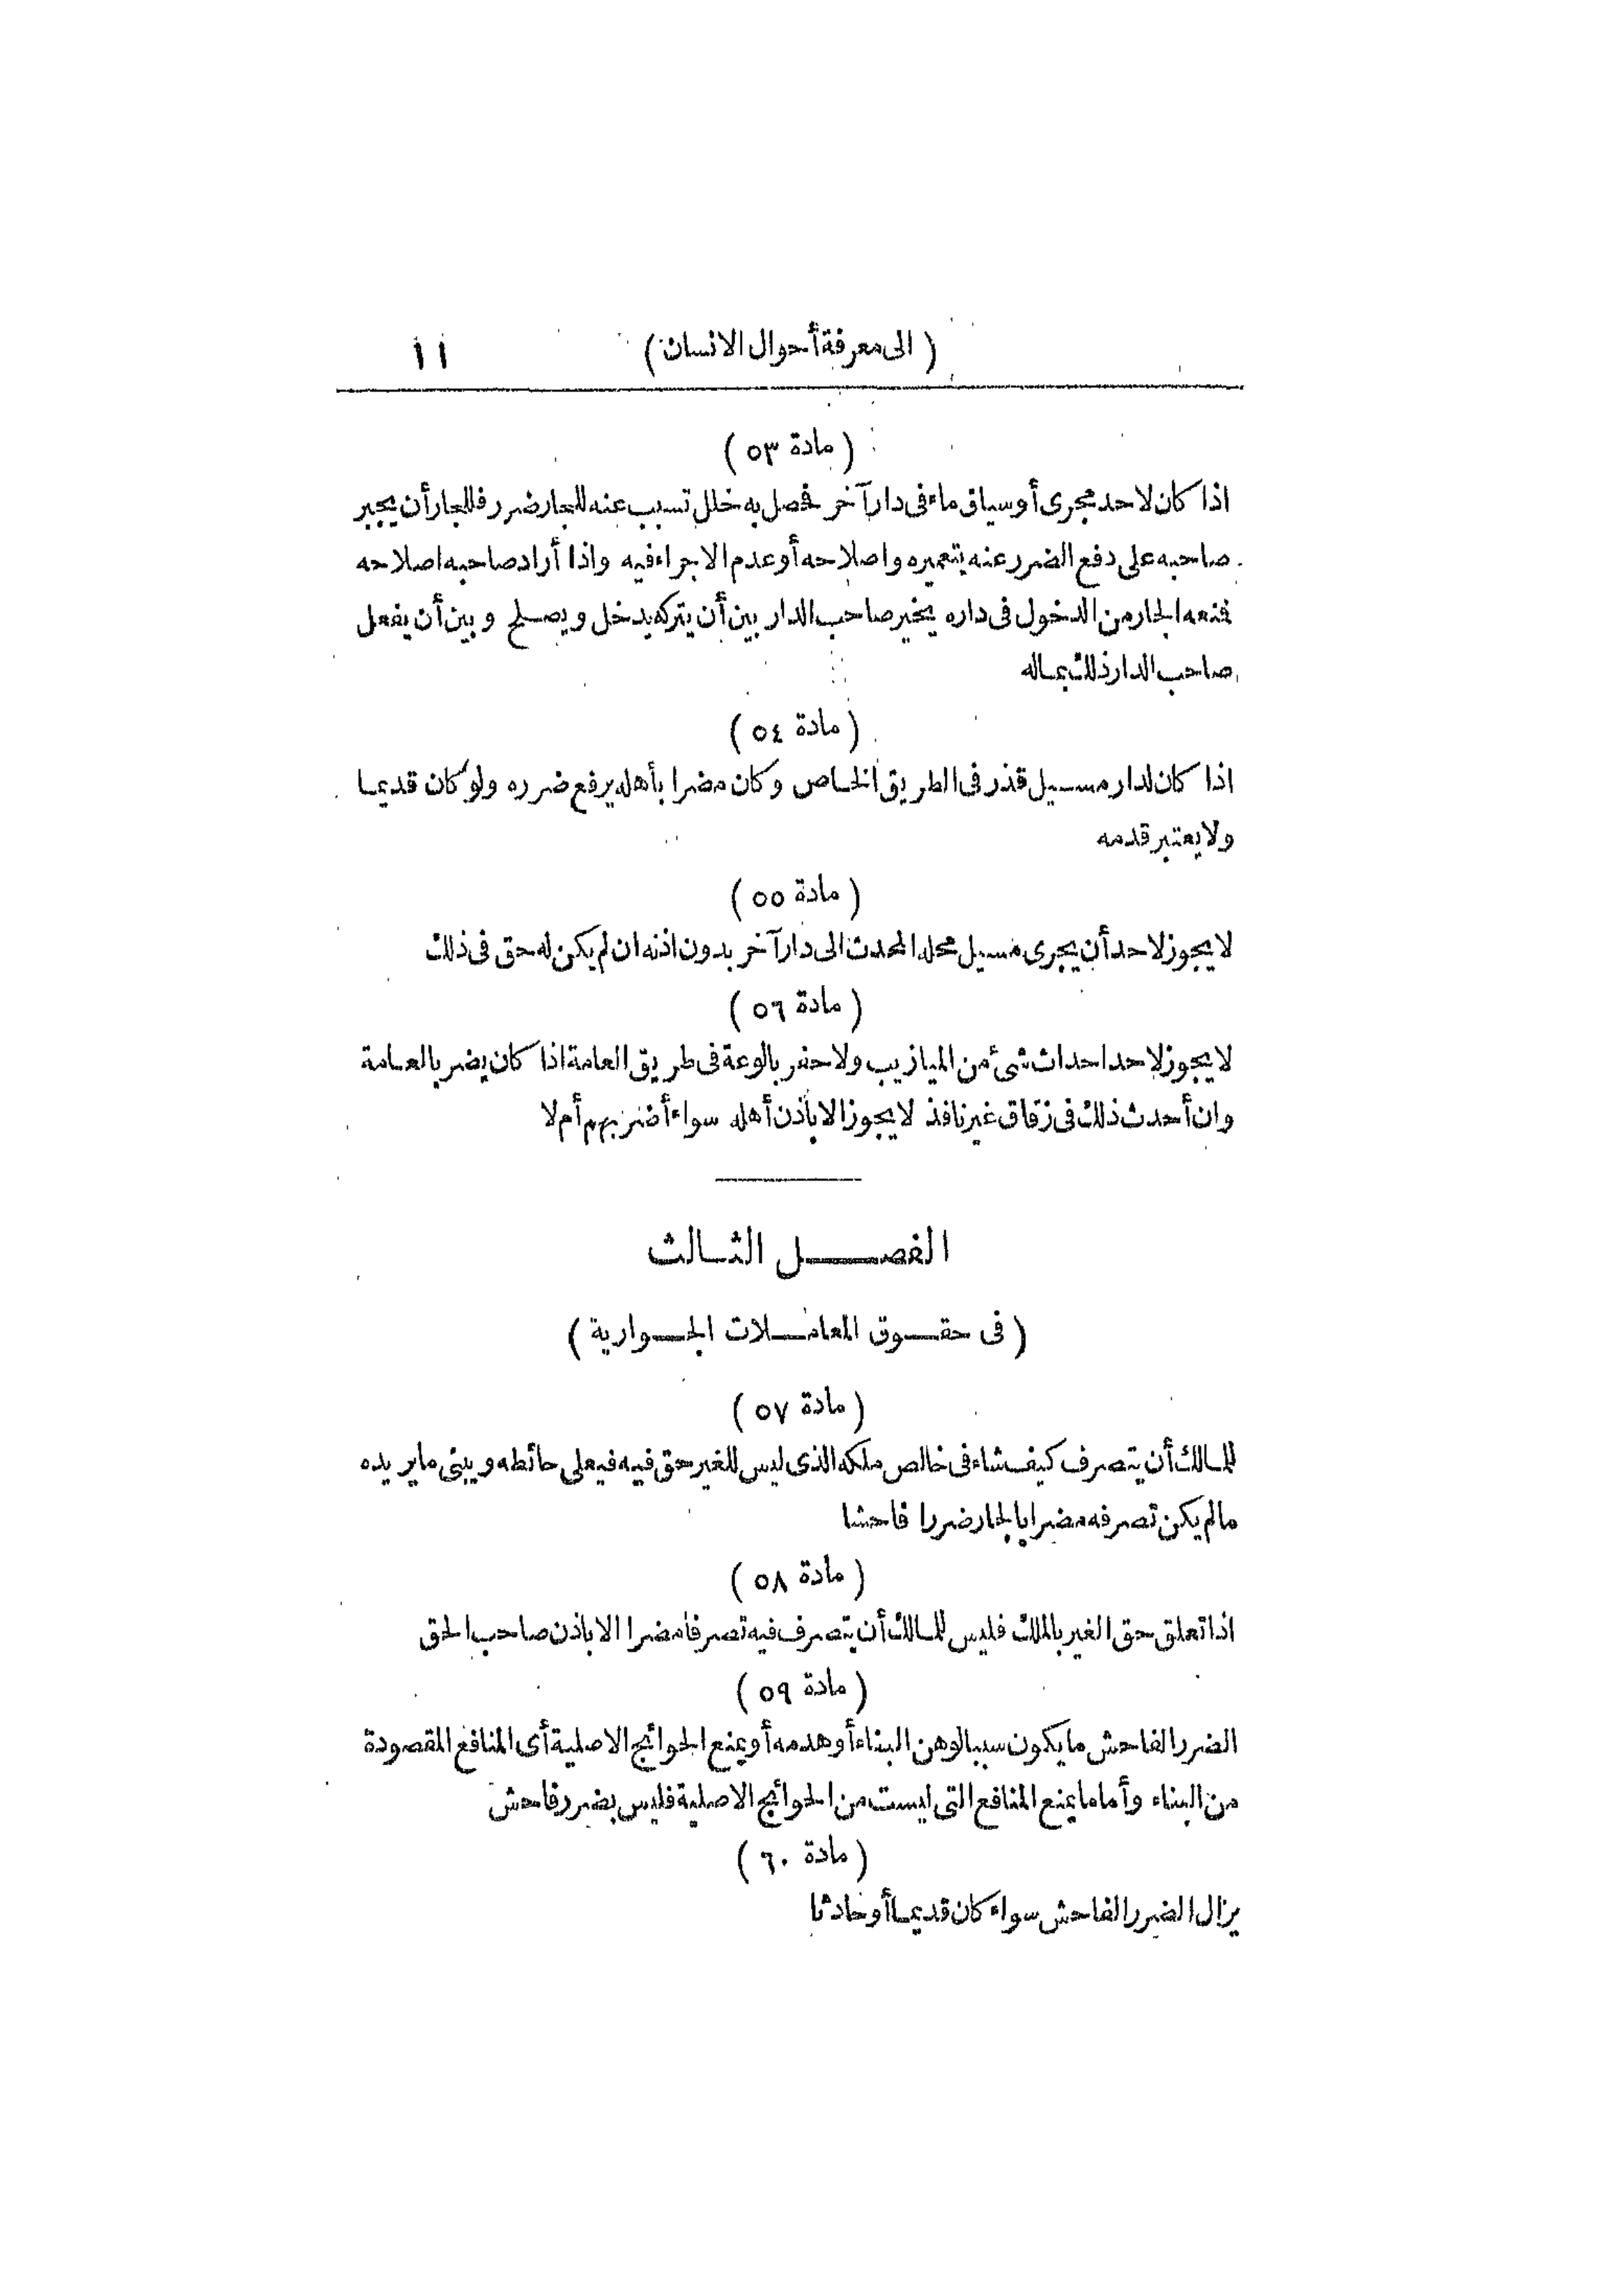 (الى معرفة أحوال الانسان) ١١
(مادة ٥٣)
اذا كان لاحد مجرى أو سياق ماء فى دار آخر فحصل به خلل تسبب عنه للجار ضرر فللجار أن يجبر
صاحبه على دفع الضرر عنه بتعميره واصلاحه أو عدم الاجراء فيه واذا أراد صاحبه اصلاحه
فمنعه الجار من الدخول فى داره يخير صاحب الدار بين أن يتركه يدخل ويصلح وبين أن يفعل
صاحب الدار ذلك بماله
(مادة ٥٤)
اذا كان لدار مسيل قذر فى الطريق الخاص وكان مضرا بأهله يرفع ضرره ولو كان قديما
ولا يعتبر قدمه
(مادة ٥٥)
لا يجوز لاحد أن يجرى مسيل محله المحدث الى دار آخر بدون اذنه ان لم يكن له حق فى ذلك
(مادة ٥٦)
لا يجوز لاحد احداث شئ من الميازيب ولا حفر بالوعة فى طريق العامة اذا كان يضر بالعامة
وان أحدث ذلك فى زقاق غير نافذ لا يجوز الا باذن أهله سواء أضر بهم أم لا
الفصل الثالث
(فى حقوق المعاملات الجوارية)
(مادة ٥٧)
للمالك أن يتصرف كيف شاء فى خالص ملكه الذى ليس للغير حق فيه فيعلى حائطه ويبنى ما يريده
ما لم يكن تصرفه مضرا بالجار ضررا فاحشا
(مادة ٥٨)
اذا تعلق حق الغير بالملك فليس للمالك أن يتصرف فيه تصرفا مضرا الا باذن صاحب الحق
(مادة ٥٩)
الضرر الفاحش ما يكون سببا لوهن البناء أو هدمه أو يمنع الحوائج الاصلية أى المنافع المقصودة
من البناء وأما ما يمنع المنافع التى ليست من الحوائج الاصلية فليس بضرر فاحش
(مادة ٦٠)
يزال الضرر الفاحش سواء كان قديما أو حادثا